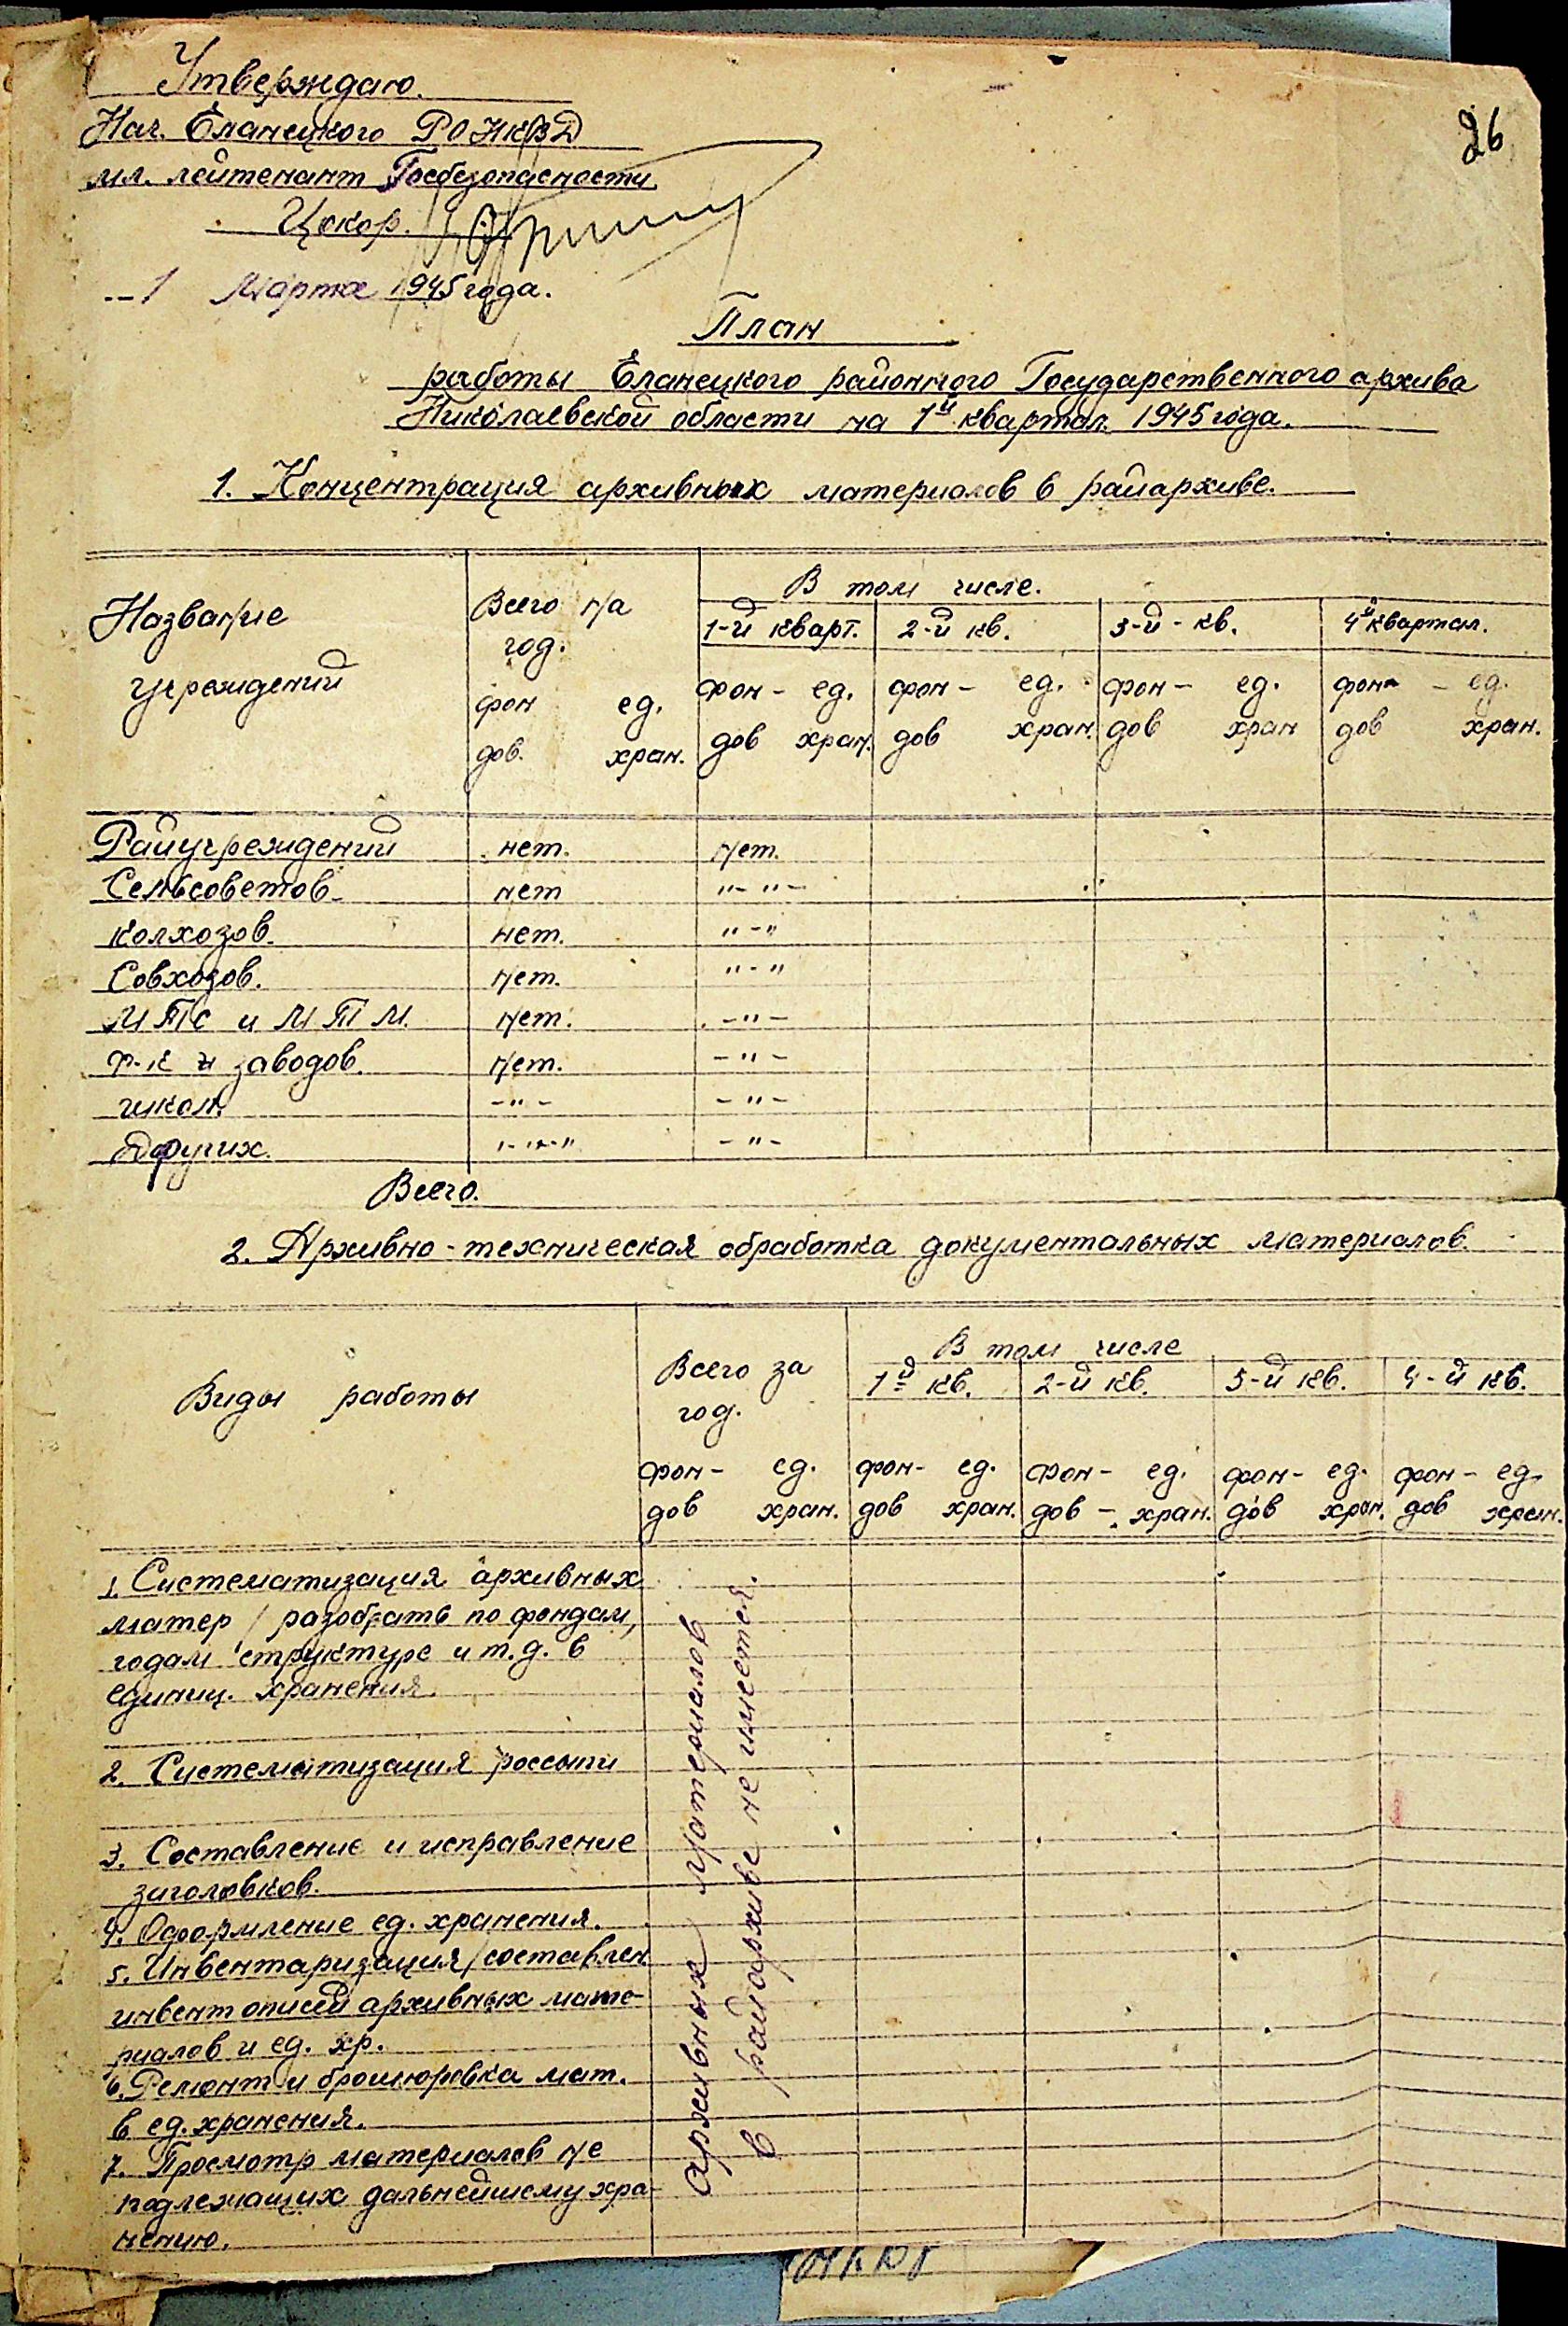 26
Утверждаю.
Нач. Еланецкого РО НКВД
мл. лейтенант Госбезопасности
Цокор.
1 Марта 1945 года.
План
работы Еланецкого районного Государственного архива
Николаевской области на 1й квартал 1945 года.
1. Концентрация архивных материалов в райархиве.
Название учреждений
Всего на год.
В том числе.
1-й кварт. 2-й кв. 3-й кв. 4й квартал.
фон ед. фон- ед. фон- ед. фон- ед. фон- ед.
дов. хран. дов хран. дов хран. дов хран дов хран.
Райучреждений нет. нет.
Сельсоветов нет "-"-
Колхозов. нет. "-"
Совхозов. нет. "-"
МТС и МТМ. нет. -"-
ф-к и заводов. нет. -"-
школ. -"- -"-
Других. "-"-" -"-
Всего.
2. Архивно-техническая обработка документальных материалов.
Виды работы
Всего за год.
В том числе
1й кв. 2-й кв. 3-й кв. 4-й кв.
фон- ед. фон- ед. фон- ед. фон- ед. фон- ед.
дов хран. дов хран. дов - хран. дов хран. дов хран.
1. Систематизация архивных
матер / разобрать по фондам,
годам структуре и т.д. в
единиц. хранения.
2. Систематизация россыпи
3. Составление и исправление
заголовков.
4. Оформление ед. хранения.
5. Инвентаризация /составлен.
инвент описей архивных мате-
риалов и ед. хр.
6. Ремонт и брошюровка мат.
в ед. хранения.
7. Просмотр материалов не
подлежащих дальнейшему хра-
нению.
Архивных материалов
в райархиве не имеется.